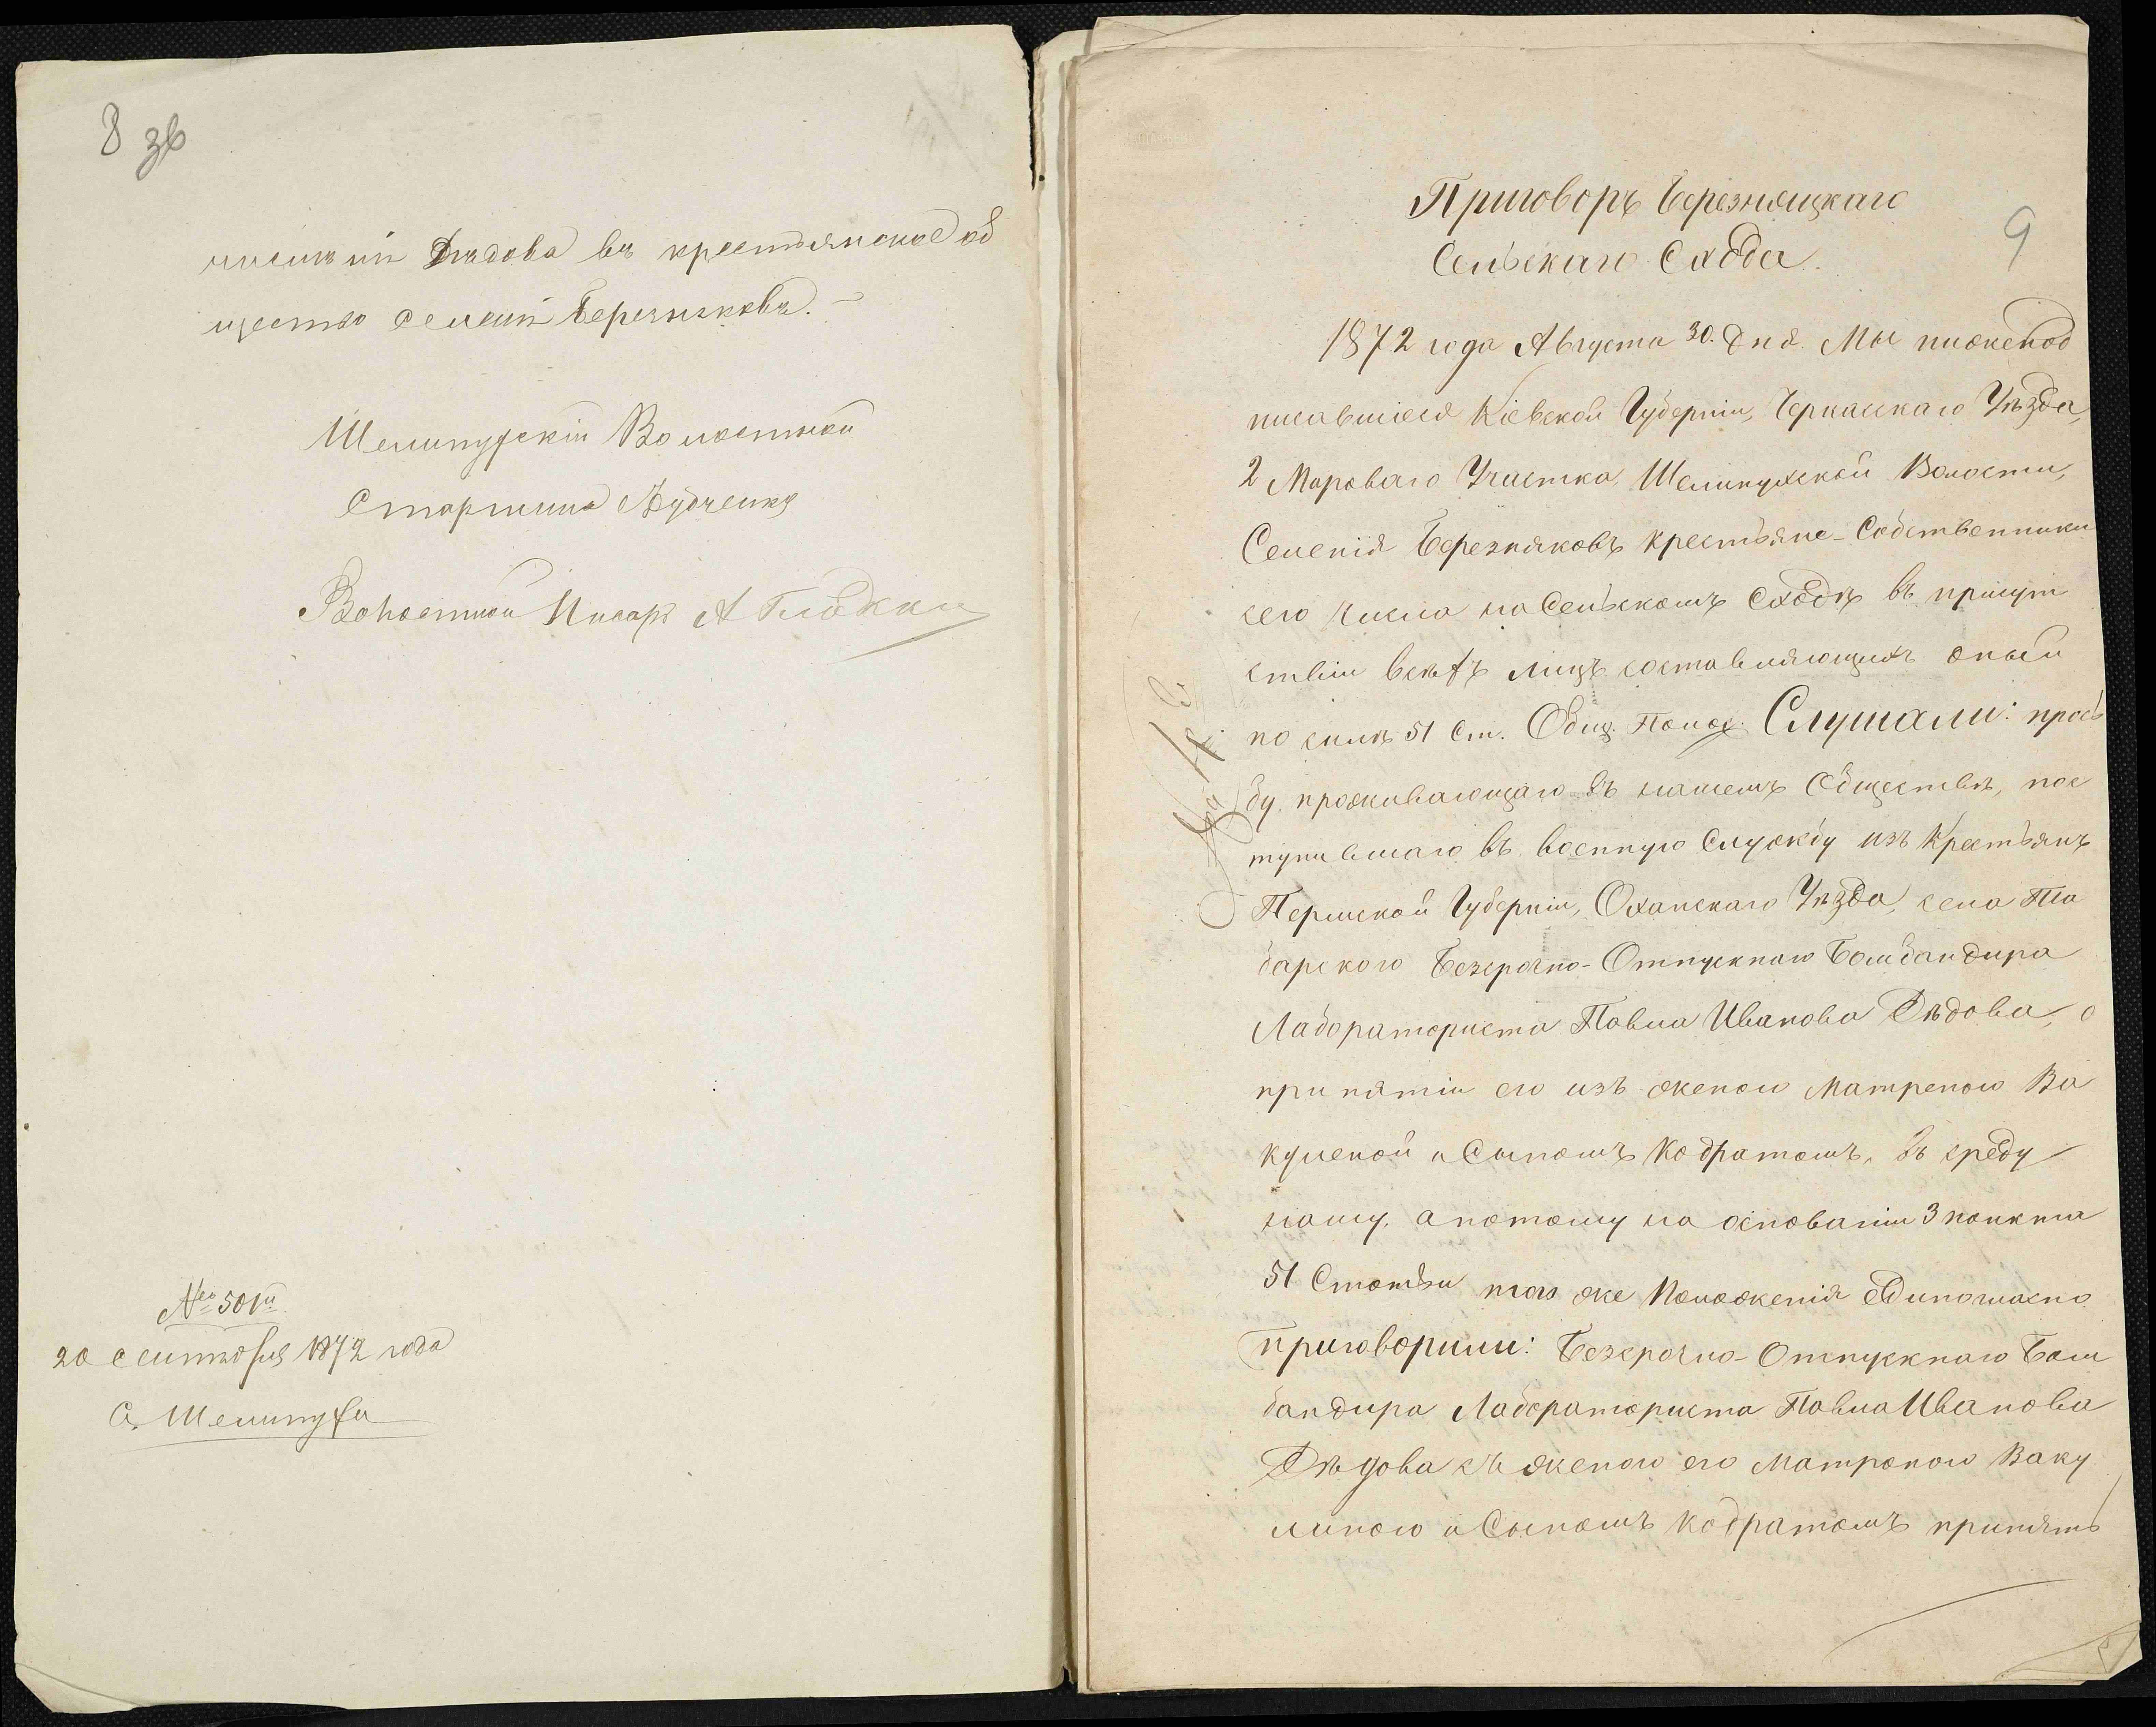 8 зв
числит Дѣдова въ крестьянское об
щество селеніт Березняковъ. –
Шелипухскій Волостной
Старшина Дудченко
Волостной Писарь А Гладкий
№ 501й
20 Сентября 1872 года
С. Шелипухи
9
Приговоръ Березняцкаго
Сельскаго Схода.
1872 года Августа 30. дня. Мы нижепод
писавшіеся Кіевской Губерніи, Черкасскаго Уѣзда,
2 Мироваго Участка, Шелипухской Волости,
Селенія Березняковъ Крестьяне-Собственники
сего числа на Сельскомъ Сходѣ въ присут
ствіи всѣхъ лицъ составляющихъ оный
по силѣ 51 Ст. Общ. Полож. Слушали: прось
бу проживающаго въ нашемъ Обществѣ, пос
тупившаго въ военную Службу изъ Крестьянъ
Пермской Губерніи, Оханскаго Уѣзда, села Та
барского Безсрочно-Отпускнаго Бомбандира
Лабораториста Павла Иванова Дѣдова, о
принятіи его изъ женою Матреною Ва
кулиной и Сыномъ Кодратомъ, въ среду
нашу, а потому на основаніи 3 пункта
51 Статьи того же Положенія единогласно
приговорили: Безсрочно-Отпускнаго Бом
бандира Лабораториста Павла Иванова
Дѣдова съ женою его Матроною Ваку
линою и Сыномъ Кодратомъ принять